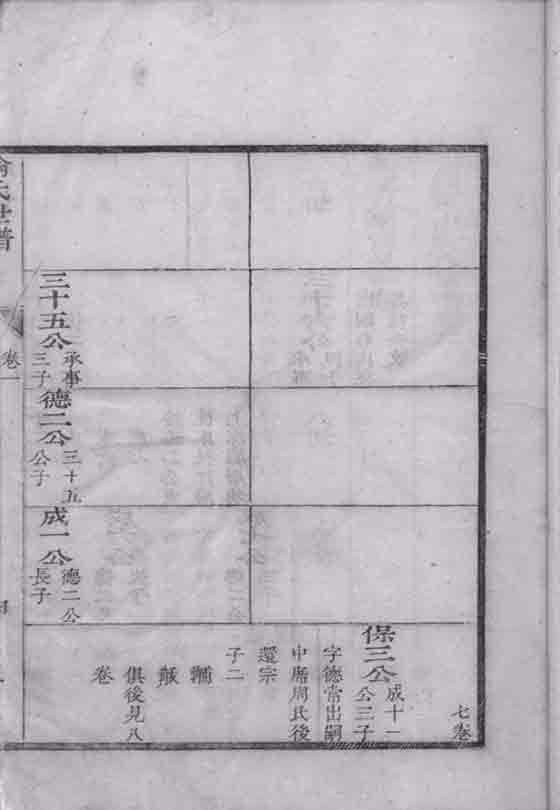 七卷
保三公
成十一
公三子
字德常出嗣
中 周氏後
還宗
子二
俱後見八
卷
三十五公
承事
三子
德二公
三十五
公子
成一公
德二公
長子
氏世譜
卷一